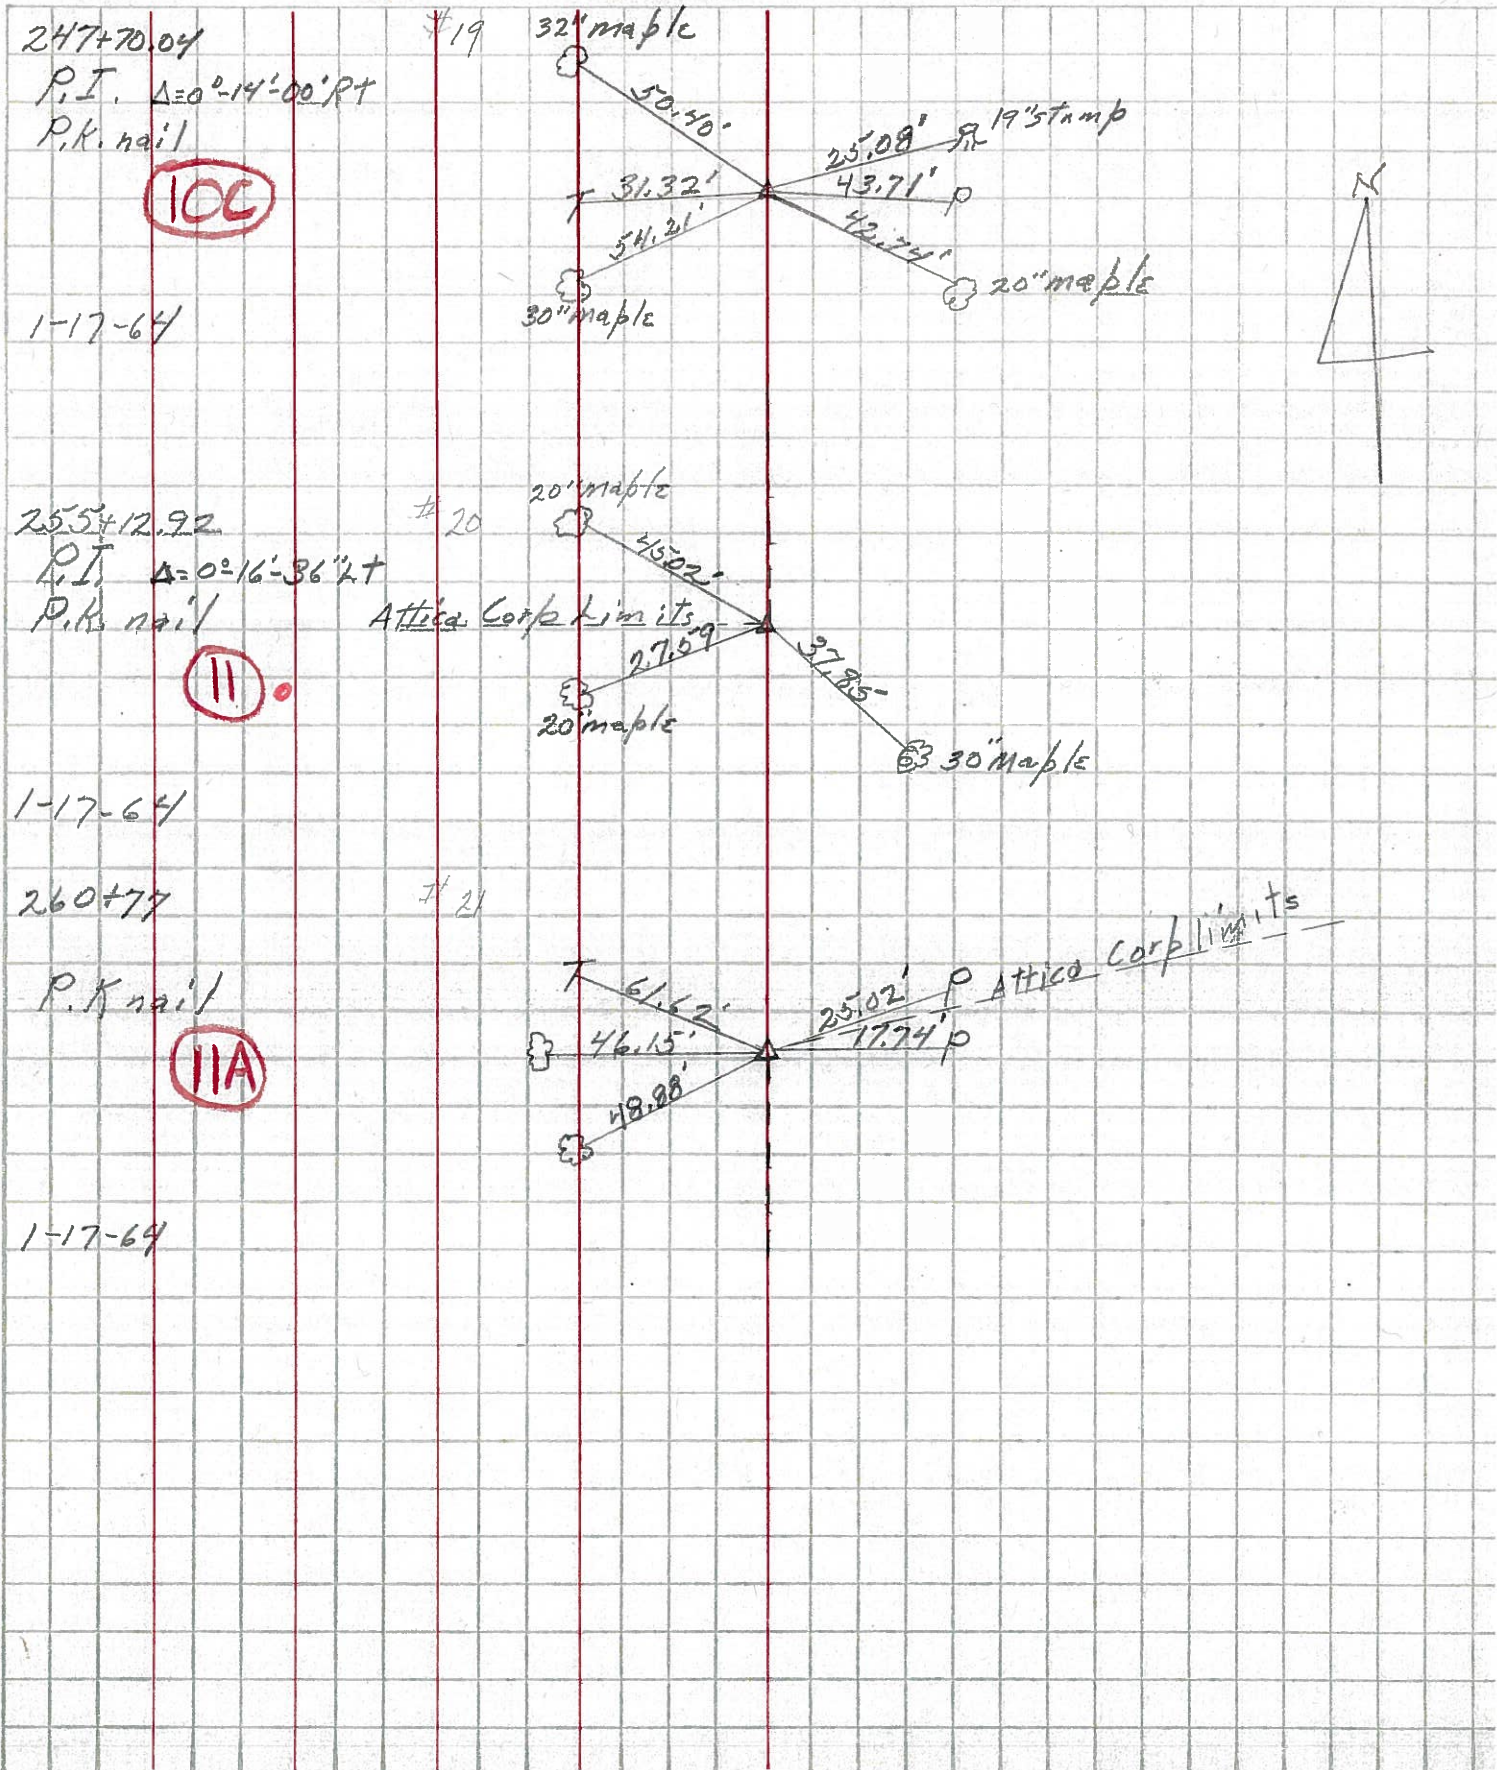 247+70.04
P.I. Δ=0°-14'-00" Rt
P.K. nail
10C
1-17-64
#19
32" maple
50.40'
25.08'
19" stump
T 31.32'
43.71' P
54.21'
42.74'
30" maple
20" maple
N
255+12.92
P.I. Δ=0°-16'-36" Lt
P.K. nail
11
1-17-64
#20
20" maple
45.02'
Attica Corp Limits
27.59
37.85
20" maple
30" Maple
260+77
P.K nail
11A
1-17-64
#21
T 61.62'
25.02' P Attica Corp limits
46.15'
17.74' P
48.88'